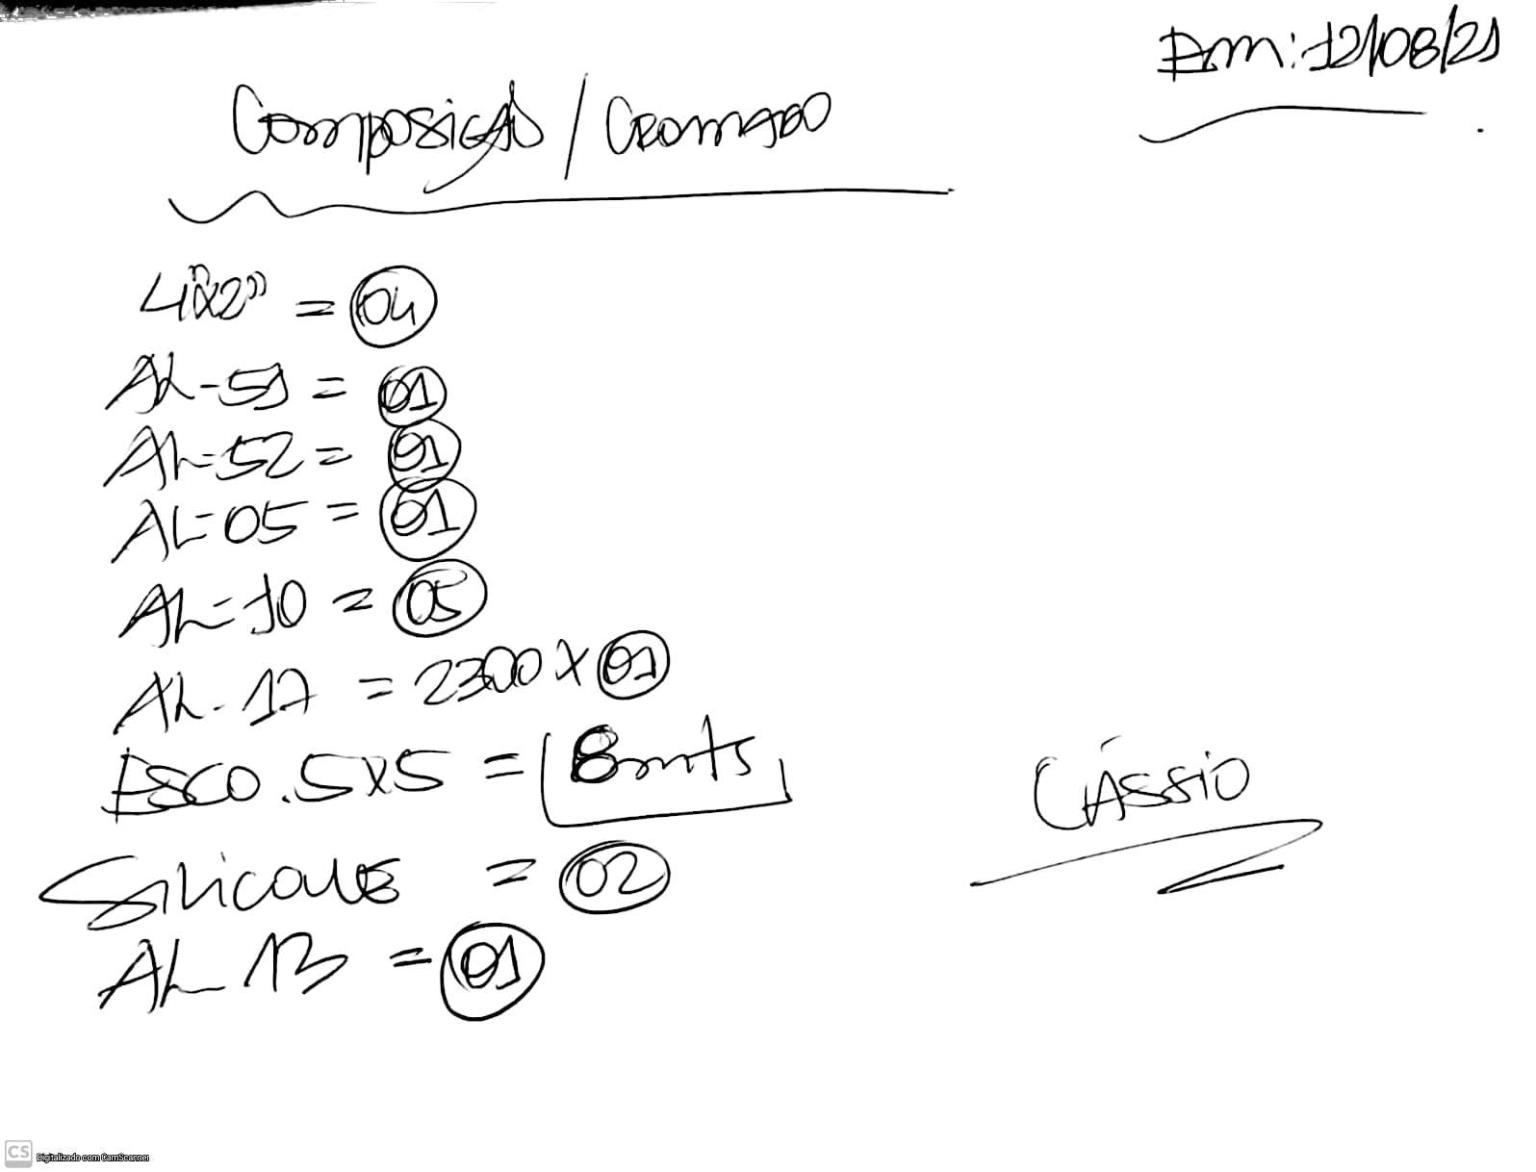 Em: 12/08/21
Composição / Cromado
4"x2" = 04
AL-51 = 01
AL-52 = 01
AL-05 = 01
AL-10 = 05
AL-17 = 2300 x 01
ESCO. 5x5 = 8 mts
CÁSSIO
Silicone = 02
AL-13 = 01
CS Digitalizado com CamScanner